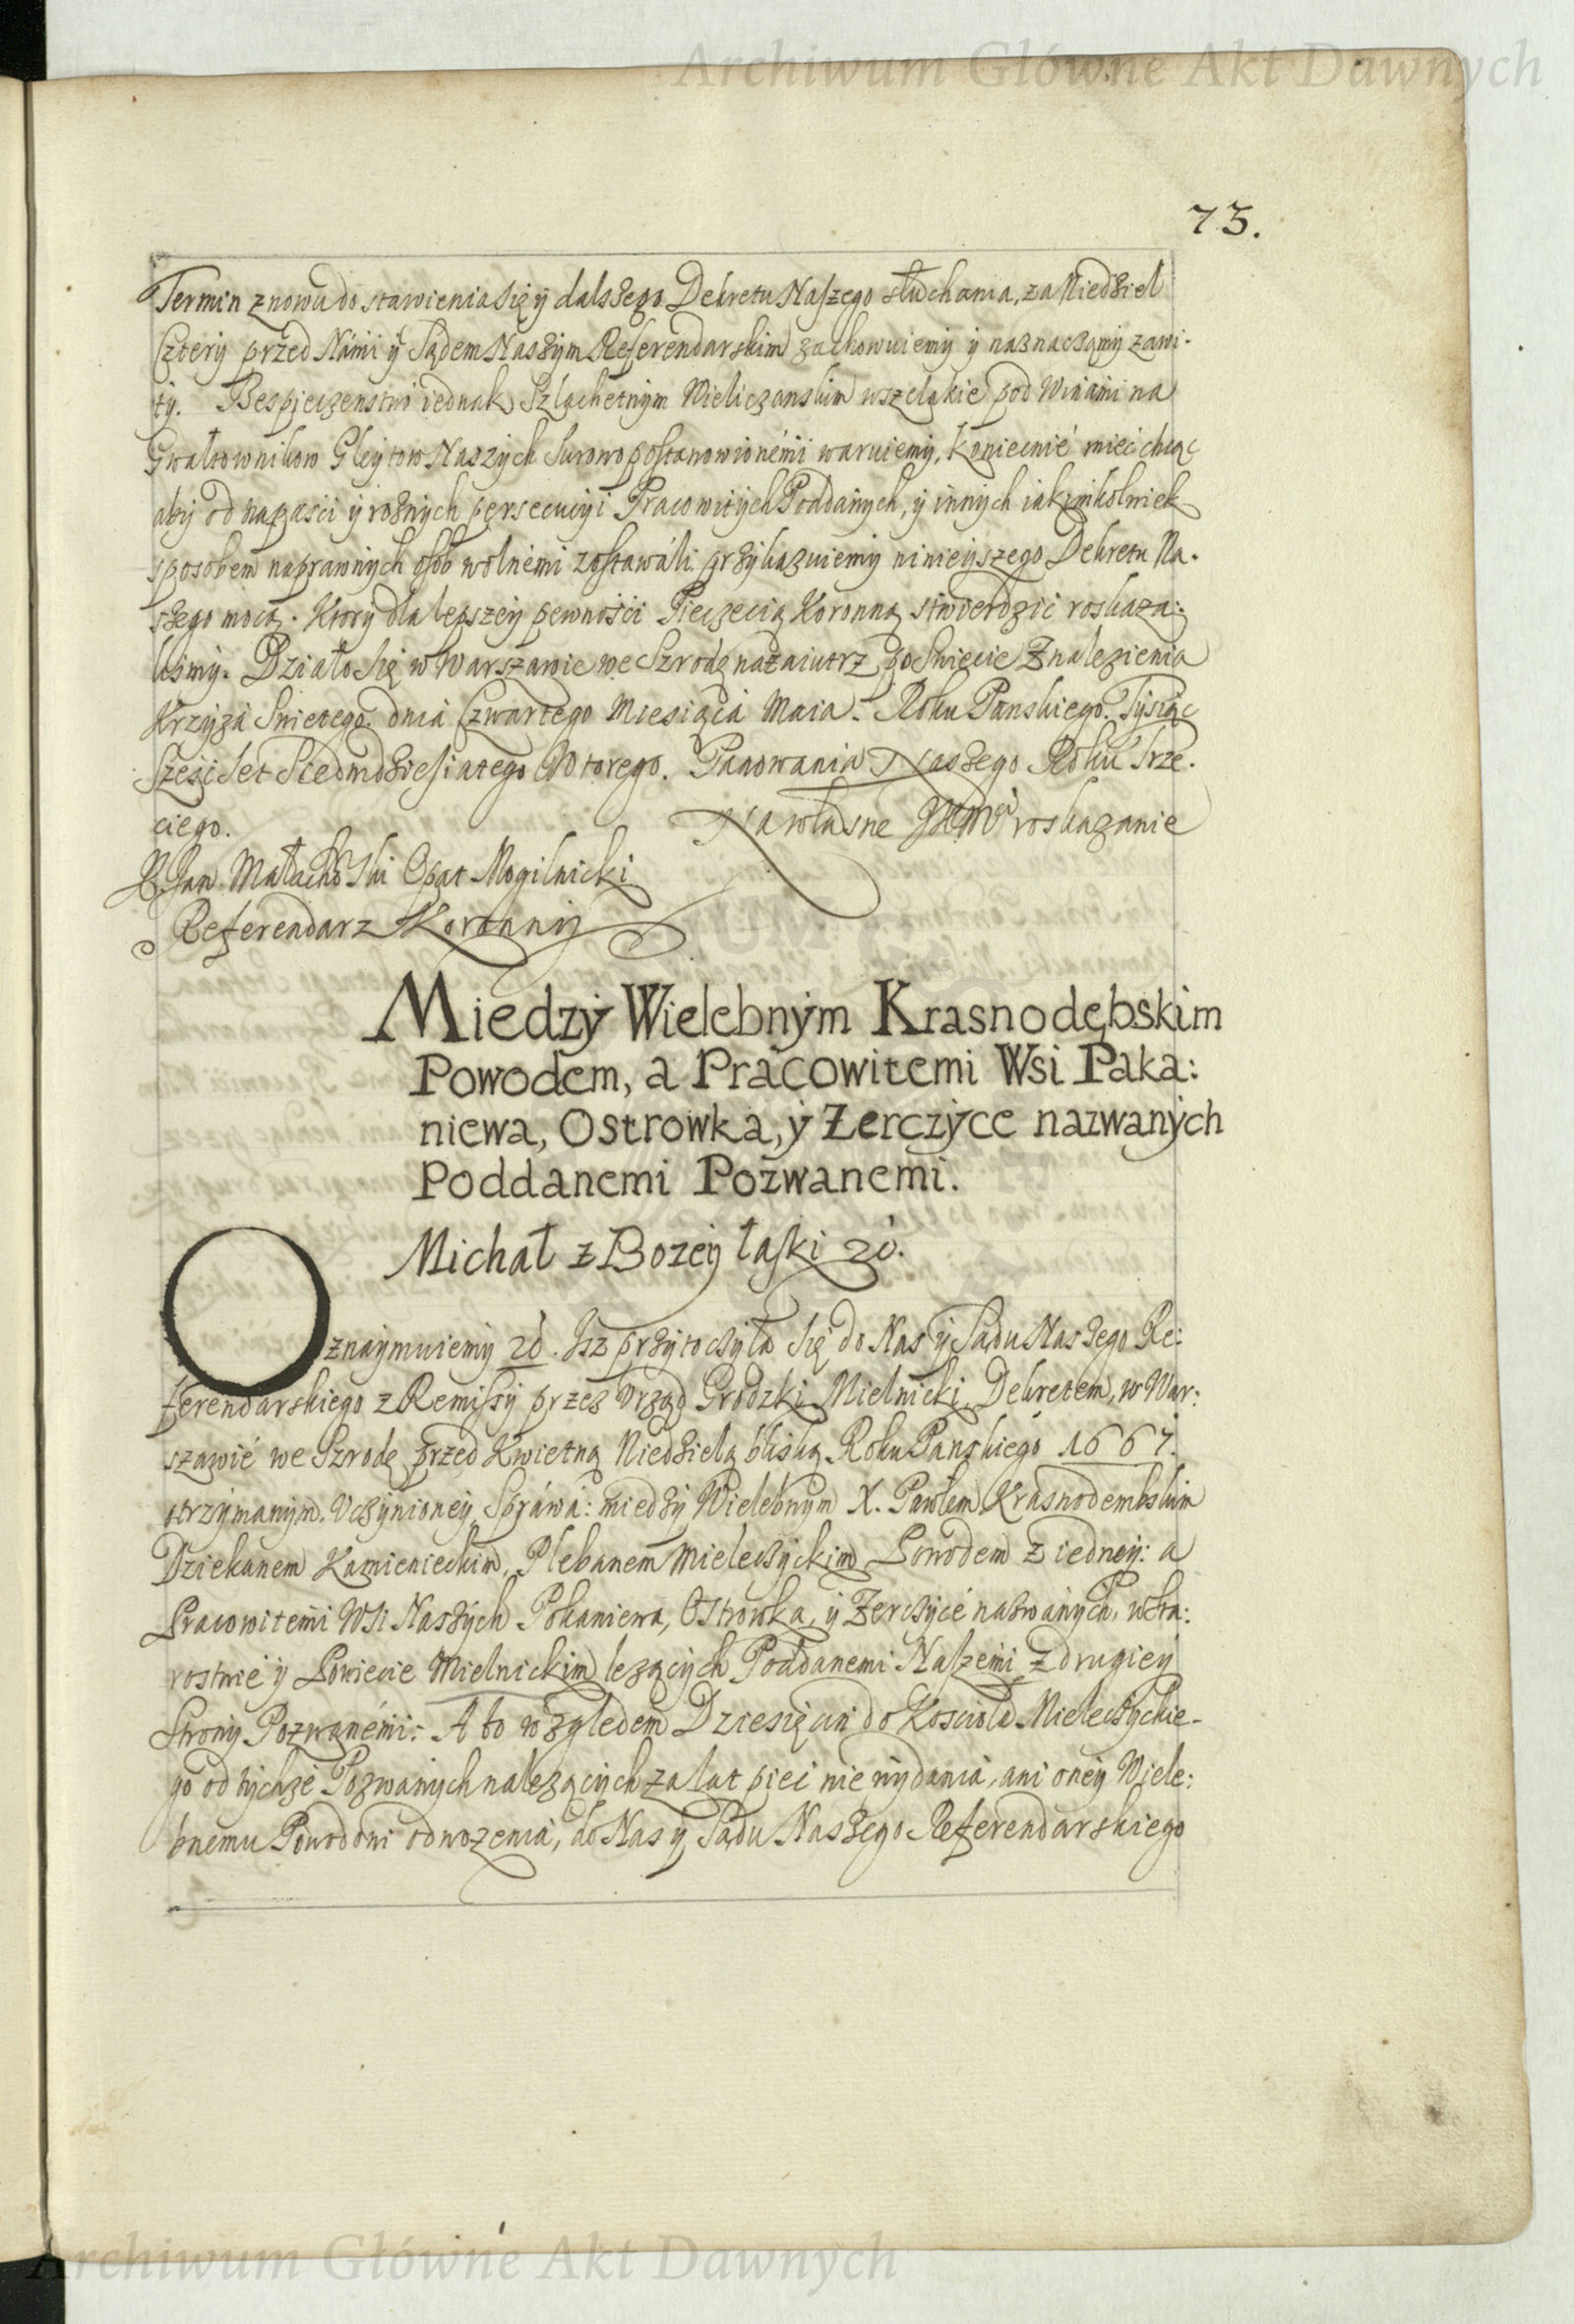 Archiwum Główne Akt Dawnych
73.
Termin znowu do stawienia się ÿ dalszego Dekretu Naszego słuchania, za Niedziel
Cztery przed Nami ÿ Sądem Naszÿm Referendarskim zachowuiemy ÿ naznaczamÿ zawi-
tÿ. Bespieczenstwo iednak Szlachetnÿm Wieliczanskim wszelakie pod Winami na
Gwałtownikow Gleÿtow Naszÿch surowo postanowionemi waruiemÿ, koniecznie mieć chcąc
abÿ od napaści ÿ roznÿch persecucÿi Pracowitÿch Poddanÿch, ÿ innÿch iakimkolwiek
sposobem naprawnÿch osob wolnemi zostawali przÿkazuiemÿ ninieÿszego Dekretu Na-
szego mocą. Ktorÿ dla lepszeÿ pewności Pieczęcią Koronną stwierdzić roskaza:
lismÿ. Działo się w Warszawie we Szrodę nazaiutrz po Swięcie Znalezienia
Krzÿża Swietego dnia Czwartego Miesiąca Maia. Roku Panskiego Tÿsiąc
Szesc Set Siedmdziesiatego Wtorego. Panowania Naszego Roku Trze-
ciego.
Na własne JKMci roskazanie
X. Jan Małachoski Opat Mogilnicki
Referendarz Koronnÿ
Miedzÿ Wielebnÿm Krasnodębskim
Powodem, a Pracowitemi Wsi Paka:
niewa, Ostrowka, ÿ Żerczÿce nazwanÿch
Poddanemi Pozwanemi.
Michał z Bozeÿ łaski etc.
Oznaÿmuiemÿ etc. Isz przÿtoczÿła się do Nas ÿ Sądu Naszego Re:
ferendarskiego z Remissÿ przez Urząd Grodzki Mielnicki, Dekretem, w War:
szawie we Szrodę przed Kwietną Niedzielą bliską Roku Panskiego 1667.
otrzÿmanÿm. Uczÿnioneÿ Sprawa: miedzÿ Wielebnym X. Pawłem Krasnodembskim
Dziekanem Kamienieckim, Plebanem Mieleczÿckim Powodem z iedneÿ: a
Pracowitemi Wsi Naszÿch Pokaniewa, Ostrowka, ÿ Zerczÿce nazwanÿch, w Sta:
rostwie ÿ Powiecie Mielnickim lezącÿch Poddanemi Naszemi z drugieÿ
Stronÿ Pozwanemi: A to względem Dziesięcin do Kosciola Mieleczÿckie-
go od tÿchze Pozwanÿch nalezącÿch za lat pieć nie wÿdania, ani oneÿ Wiele:
bnemu Powodowi odwozenia, do Nas ÿ Sądu Naszego Referendarskiego
Archiwum Główne Akt Dawnych